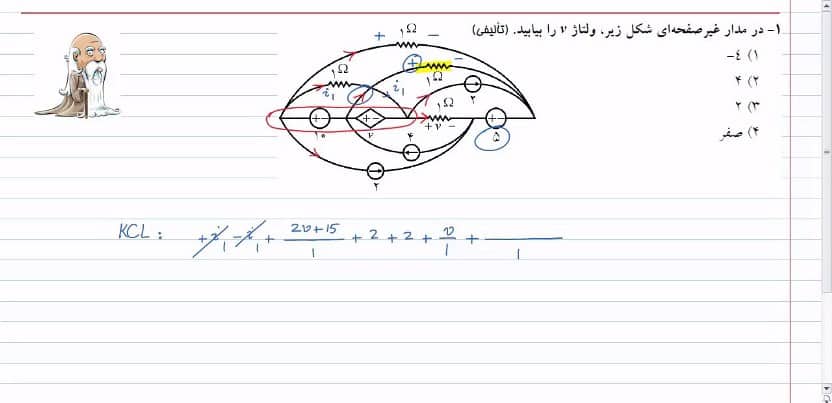 ۱- در مدار غیرصفحه‌ای شکل زیر، ولتاژ v را بیابید. (تألیفی)
۱) ۴-
۲) ۴
۳) ۲
۴) صفر
+ ۱Ω −
۱Ω
+
۱Ω
i₁
i₁
۲
۱Ω
+ -
+ -
+ v -
+ -
۱۰
v
۴
۵
۲
KCL : +i₁ - i₁ + (2v+15)/1 + 2 + 2 + v/1 + /1